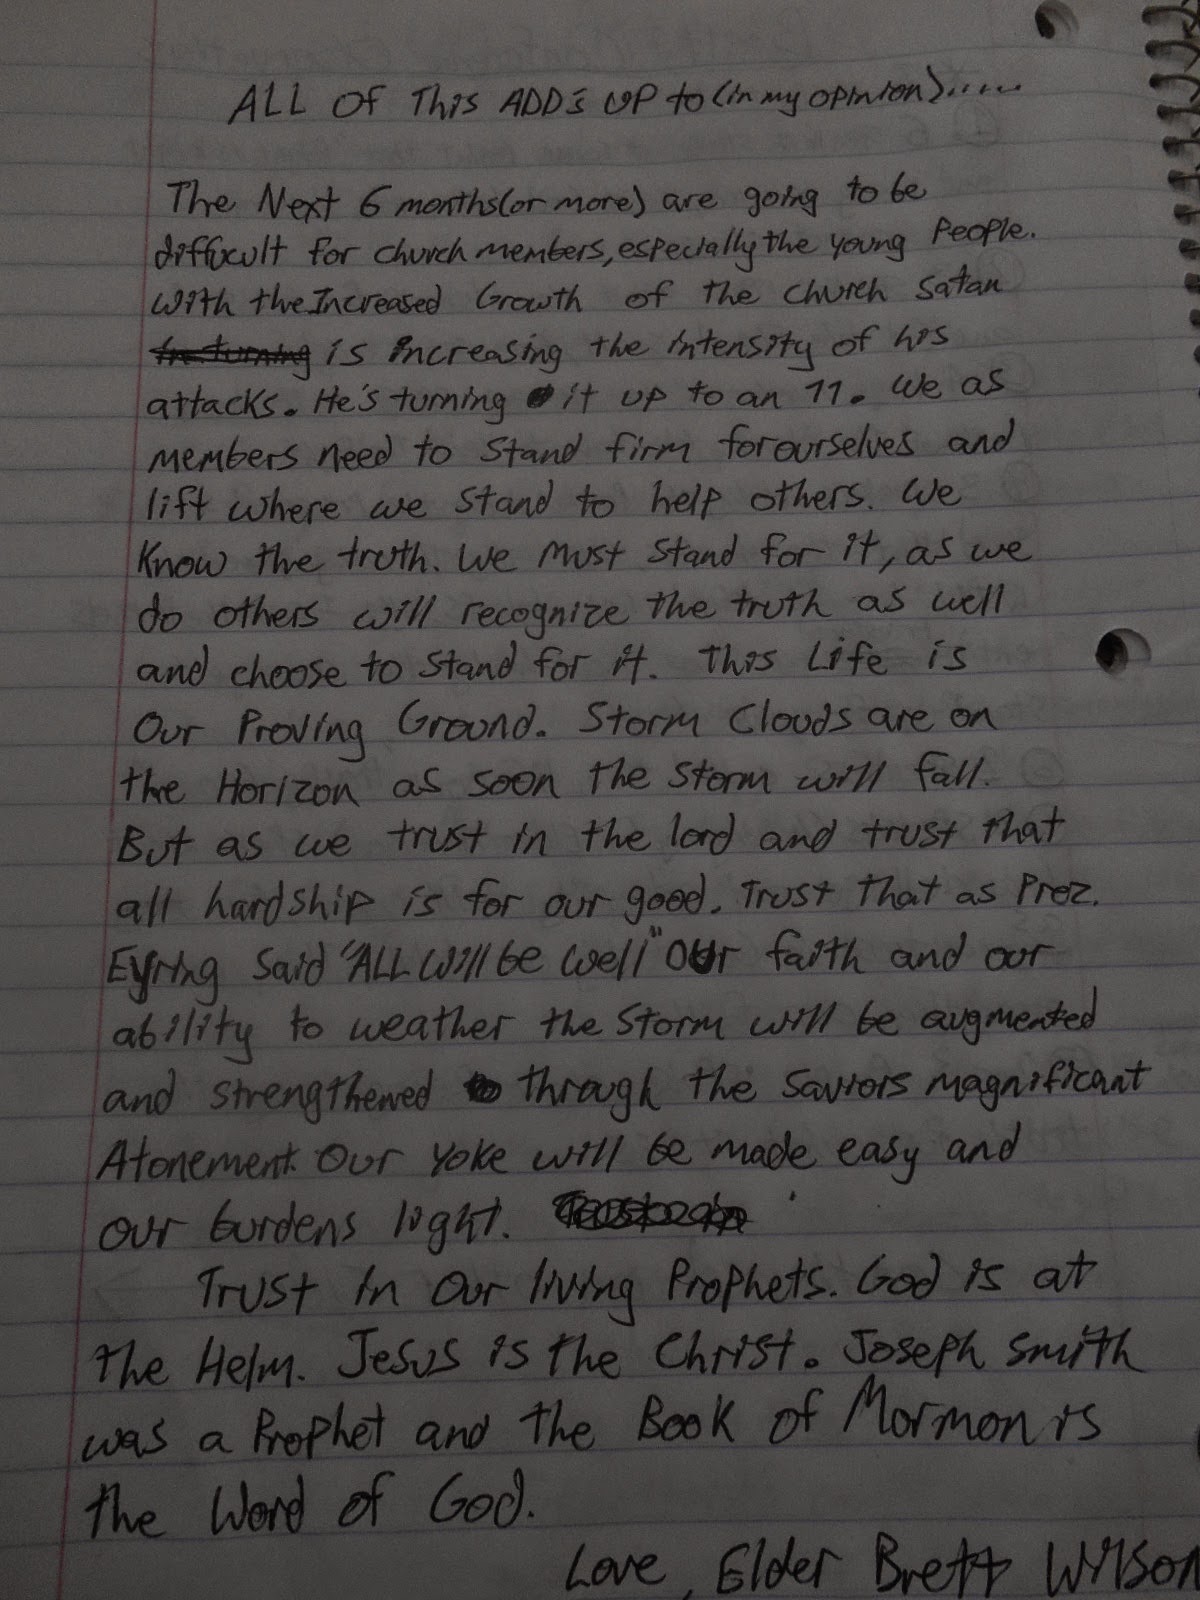 ALL OF This ADD's UP to (in my opinion).....
The Next 6 months (or more) are going to be
difficult for church members, especially the young People.
With the Increased Growth of the church Satan
is increasing the intensity of his
attacks. He's turning it up to an 11. We as
members need to stand firm for ourselves and
lift where we stand to help others. We
Know the truth. We Must stand for it, as we
do others will recognize the truth as well
and choose to stand for it. This Life is
Our Proving Ground. Storm Clouds are on
the Horizon as soon the storm will fall.
But as we trust in the lord and trust that
all hardship is for our good. Trust that as Prez.
Eyring said "ALL will be well" Our faith and our
ability to weather the storm will be augmented
and strengthened through the Saviors magnificant
Atonement. Our yoke will be made easy and
our burdens light.
Trust in Our living Prophets. God is at
the Helm. Jesus is the Christ. Joseph Smith
was a Prophet and the Book of Mormon is
the Word of God.
Love, Elder Brett Wilson